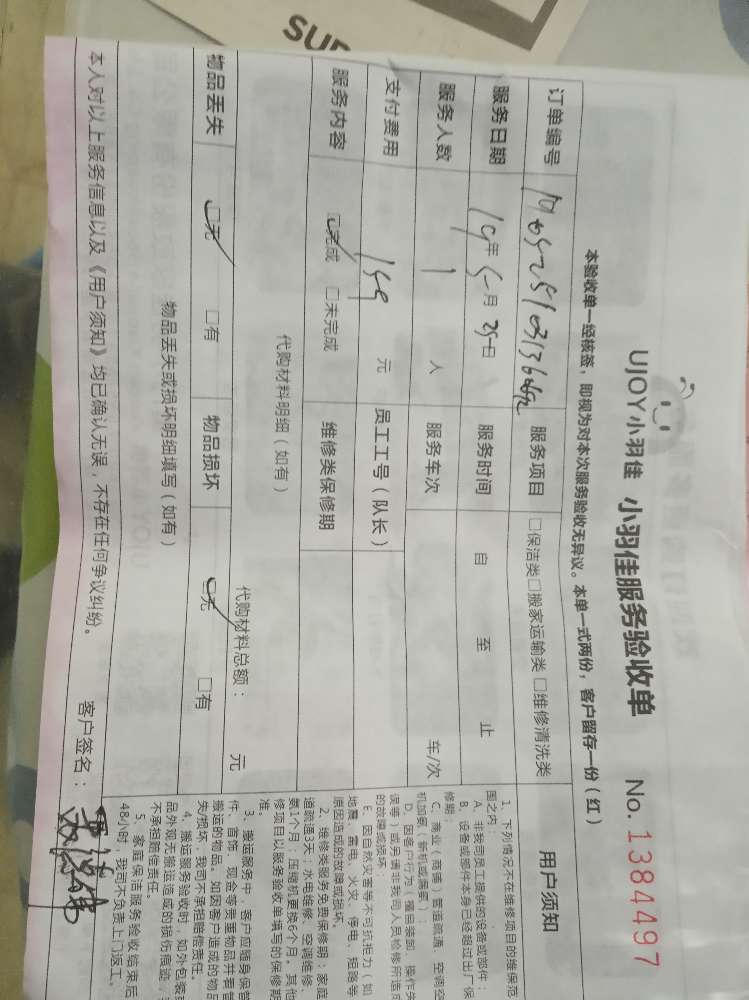 SUP
UJOY小羽佳 小羽佳服务验收单 No. 1384497
本验收单一经核签，即视为对本次服务验收无异议。本单一式两份，客户留存一份（红）
订单编号 服务项目 □保洁类□搬家运输类□维修清洗类
服务日期 19年5月25日 服务时间 自 至 止
服务人数 1 人 服务车次 车/次
支付费用 149 元 员工工号（队长）
服务内容 □完成 □未完成 维修类保修期
代购材料明细（如有）
代购材料总额： 元
物品丢失 □无 □有 物品损坏 □无 □有
物品丢失或损坏明细填写（如有）
本人对以上服务信息以及《用户须知》均已确认无误，不存在任何争议纠纷。 客户签名：
用户须知
1、下列情况不在维修项目的维保范
围之内：
A、非我司员工提供的设备或部件；
B、设备或部件本身已经超过出厂保
修期；
C、商业（商铺）管道疏通、空调空
机加氟（新机或漏氟）；
D、因客户行为（擅自装卸、操作失
误等）或另请非我司人员检修所造成
的故障或损坏；
E、因自然灾害等不可抗拒力（如
地震、雷电、火灾、停电、短路等
原因造成的故障或损坏。
2、维修类服务免费保修期：家庭
道疏通3天、水电维修、空调维修、
氨1个月，压缩机更换6个月。其他
修项目以服务验收单填写的保修期
准。
3、搬运服务中，客户应随身保管
件、首饰、现金等贵重物品并看管
搬运的物品。如因客户造成的物品
失/损坏，我司不承担赔偿责任。
4、搬运服务验收时，如外包装或
品外观无搬运造成的损伤痕迹，
不承担赔偿责任。
5、家庭保洁服务验收结束后
48小时，我司不负责上门返工。